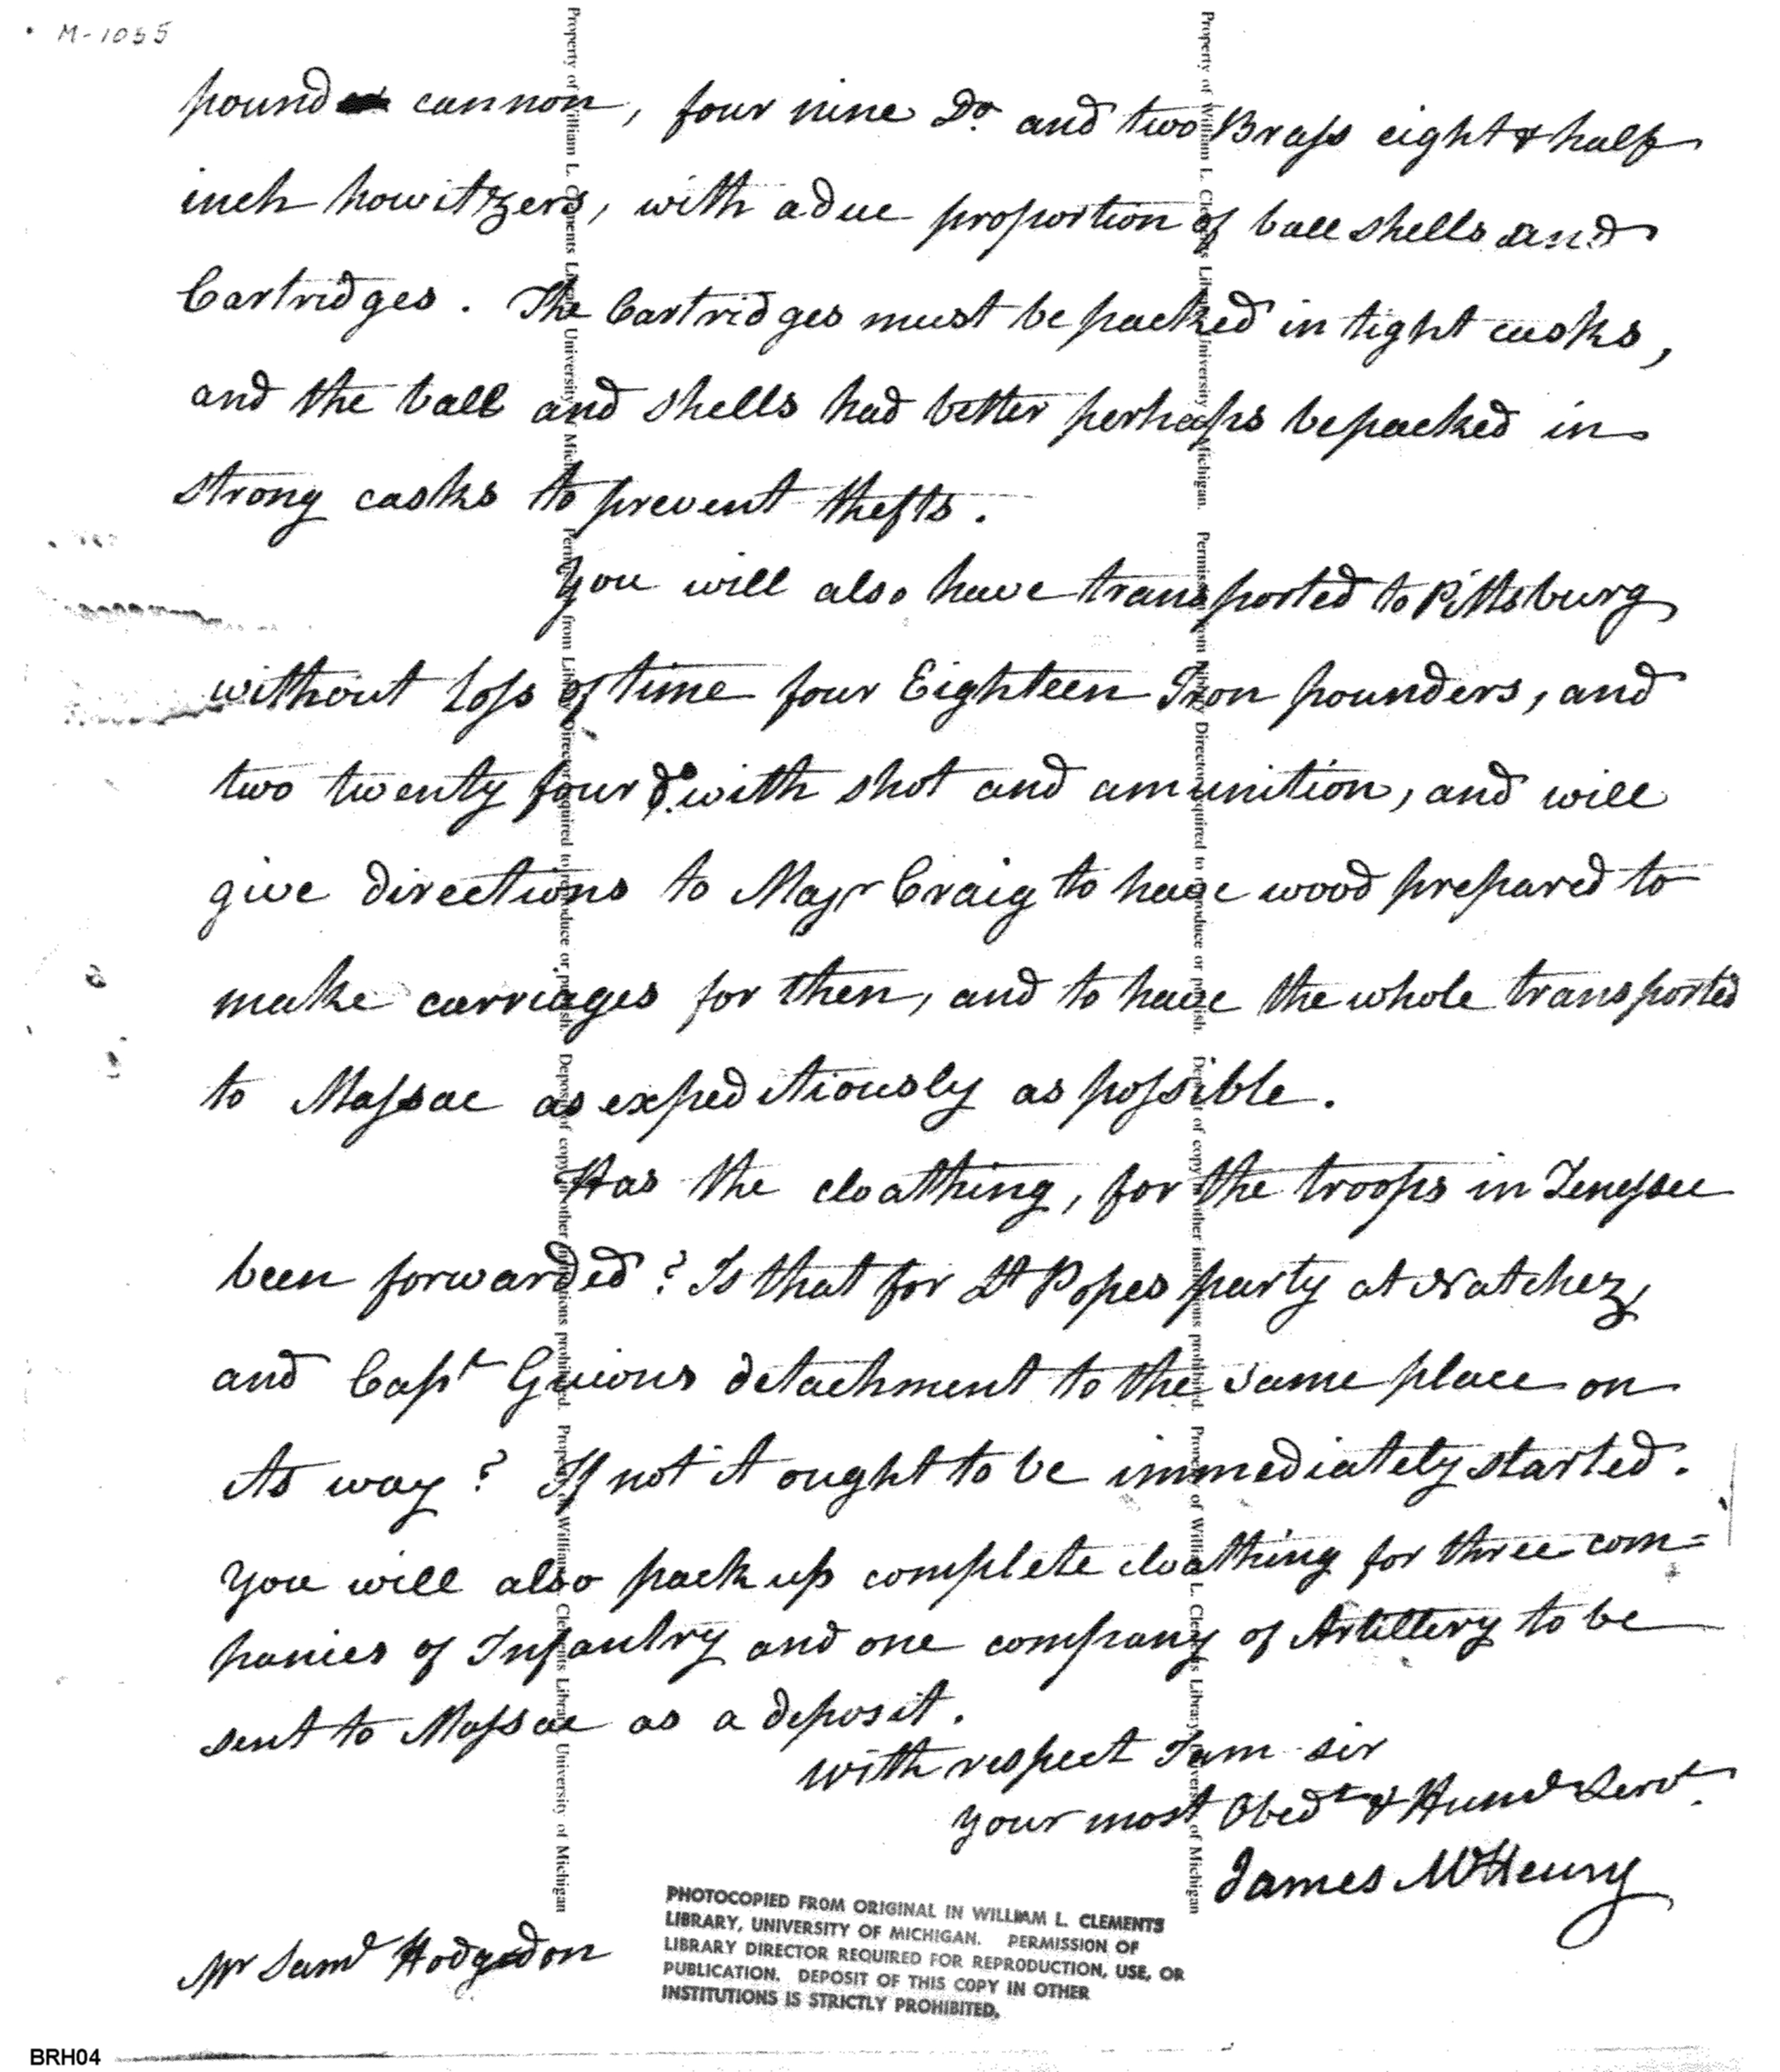 M-1055
pound cannon, four nine Do. and two Brass eight & half
inch howitzers, with a due proportion of ball shells and
Cartridges. The Cartridges must be packed in tight casks,
and the ball and shells had better perhaps be packed in
strong casks to prevent thefts.
You will also have transported to Pittsburg
without loss of time four Eighteen Iron pounders, and
two twenty four do. with shot and amunition, and will
give directions to Majr Craig to have wood prepared to
make carriages for then, and to have the whole transported
to Massac as expeditiously as possible.
Has the cloathing, for the troops in Tenessee
been forwarded? Is that for Lt Popes party at Natchez,
and Capt Guions detachment to the same place on
its way? If not it ought to be immediately started.
You will also pack up complete cloathing for three com=
panies of Infantry and one company of Artillery to be
sent to Massac as a deposit.
with respect I am sir
your most Obedt & Humd Servt.
James McHenry
Mr Saml Hodgsdon
PHOTOCOPIED FROM ORIGINAL IN WILLIAM L. CLEMENTS
LIBRARY, UNIVERSITY OF MICHIGAN. PERMISSION OF
LIBRARY DIRECTOR REQUIRED FOR REPRODUCTION, USE, OR
PUBLICATION. DEPOSIT OF THIS COPY IN OTHER
INSTITUTIONS IS STRICTLY PROHIBITED.
BRH04
Property of William L. Clements Library, University of Michigan. Permission from Library Director required to reproduce or publish. Deposit of copy in other institutions prohibited. Property of William L. Clements Library, University of Michigan
Property of William L. Clements Library, University of Michigan. Permission from Library Director required to reproduce or publish. Deposit of copy in other institutions prohibited. Property of William L. Clements Library, University of Michigan